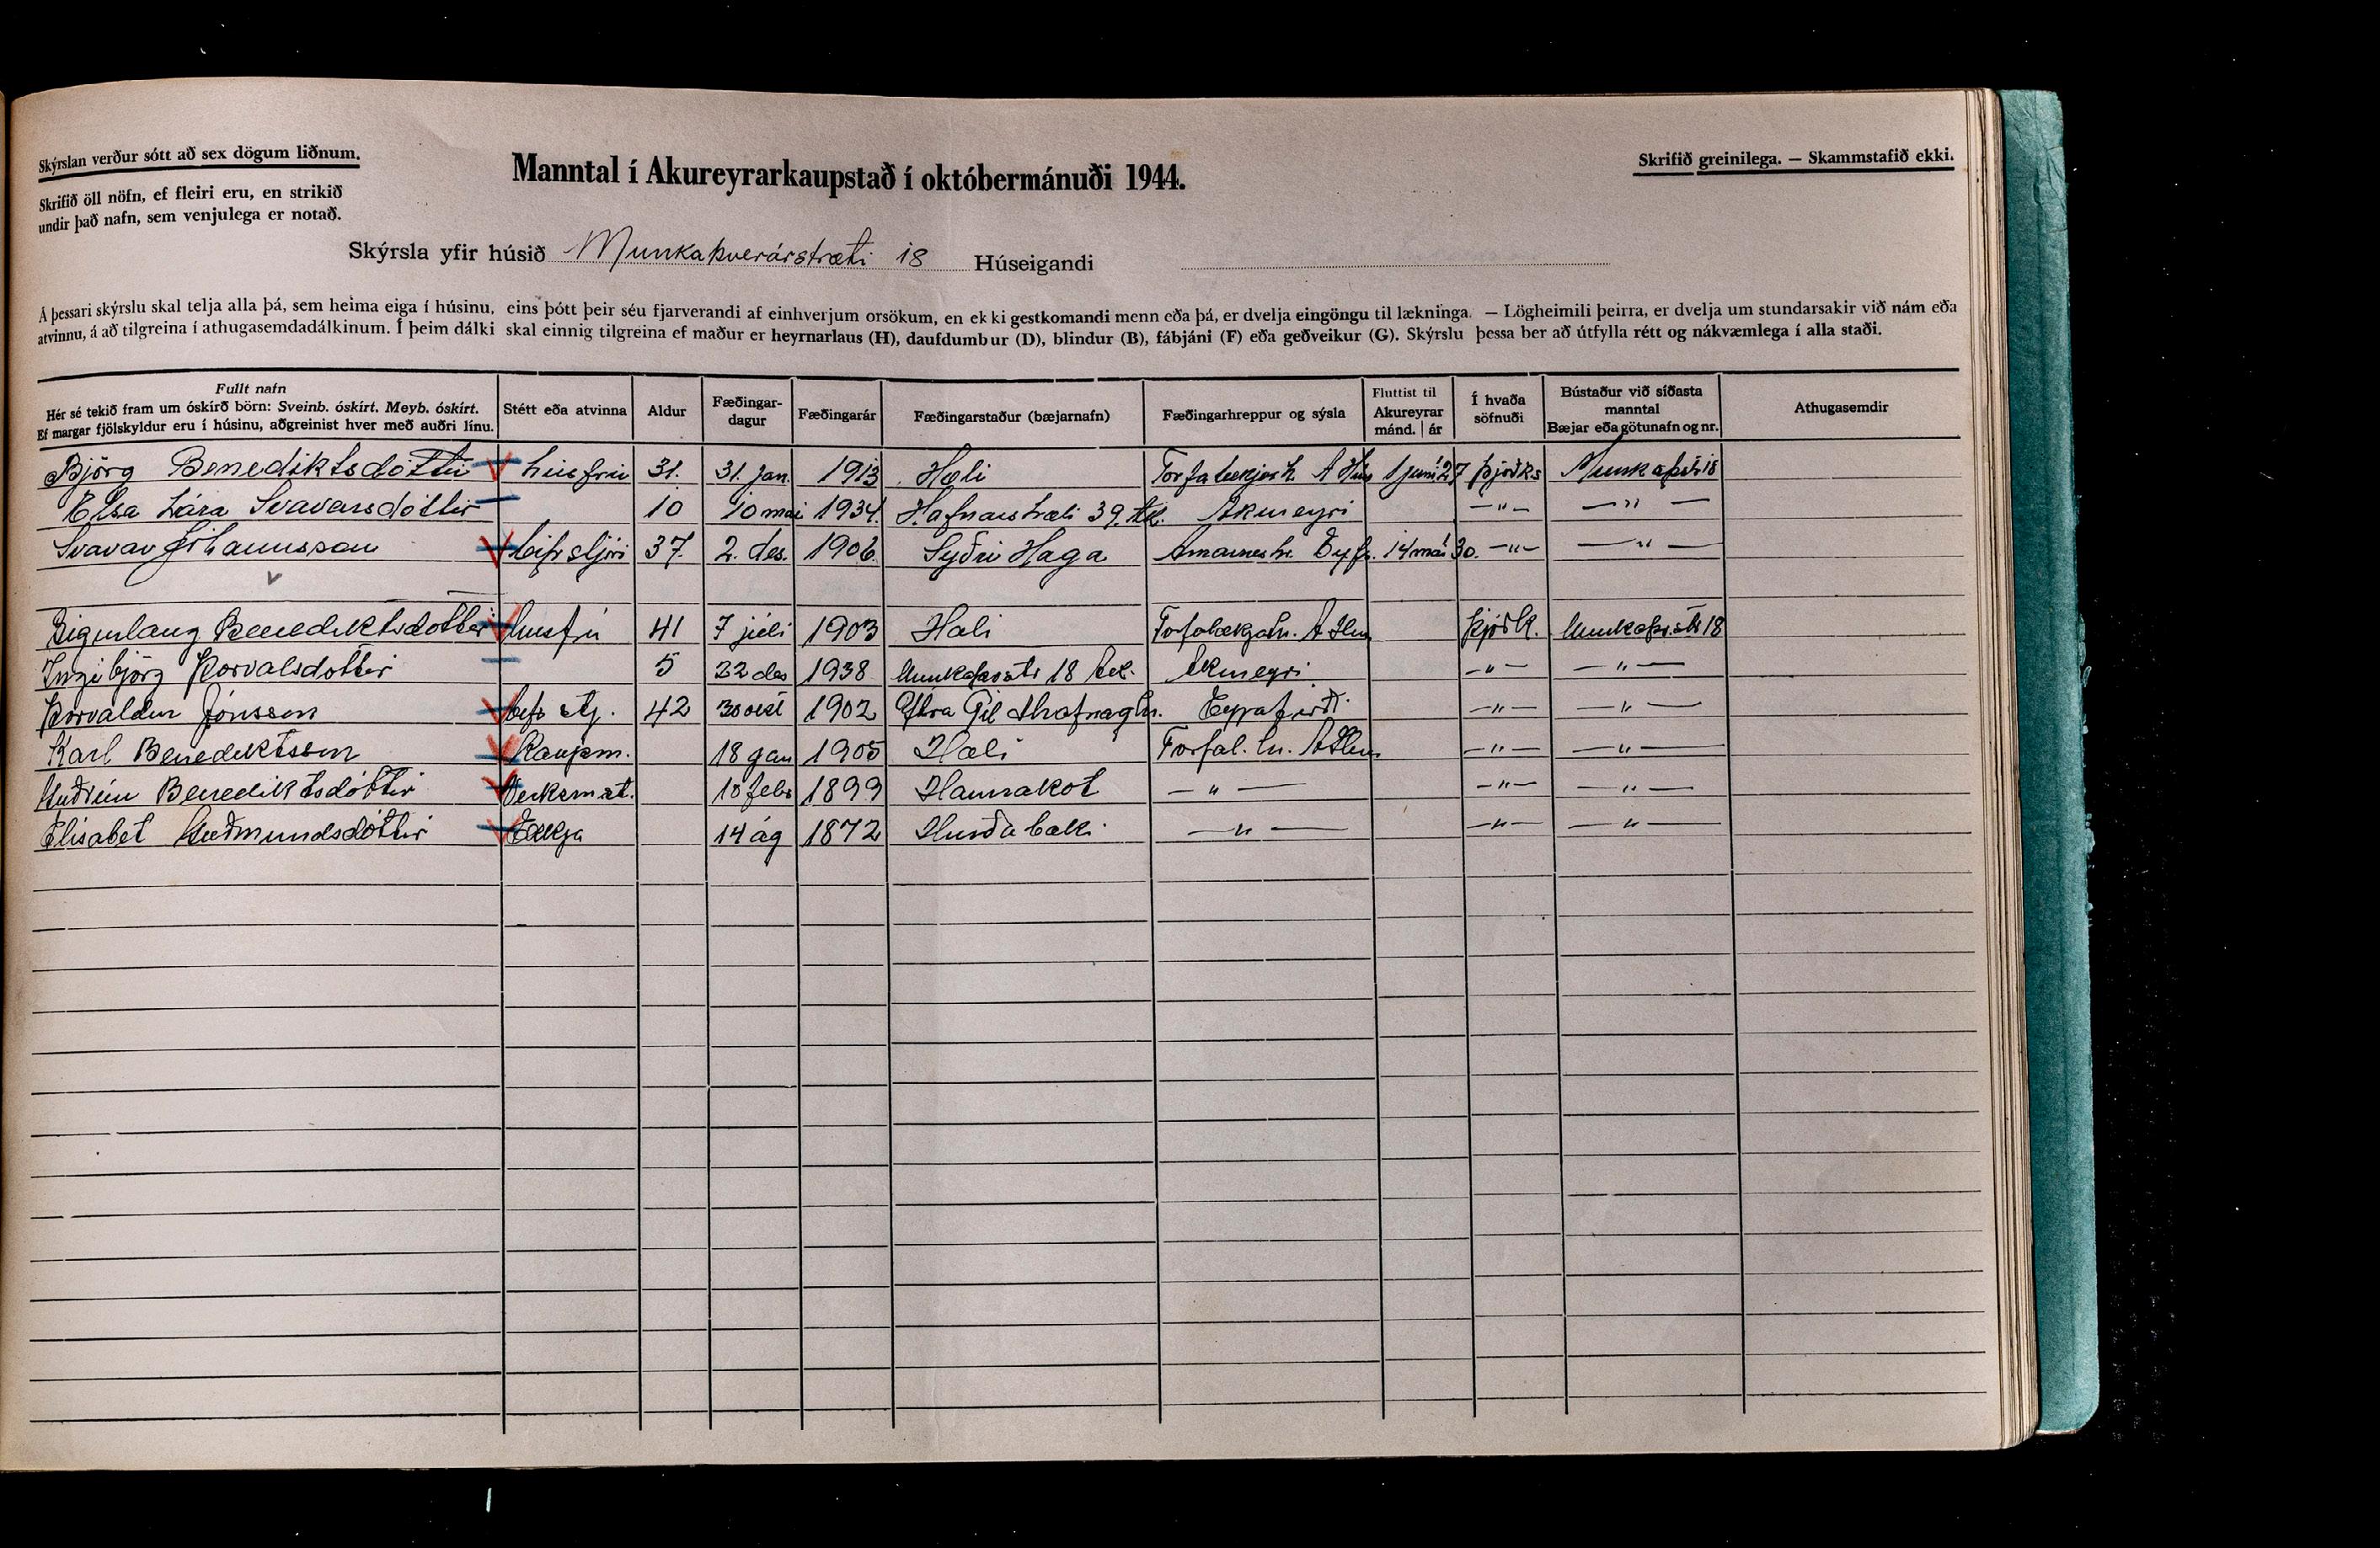 Skýrslan verður sótt að sex dögum liðnum.
Skrifið öll nöfn, ef fleiri eru, en strikið
undir það nafn, sem venjulega er notað.
Manntal í Akureyrarkaupstað í októbermánuði 1944.
Skrifið greinilega. — Skammstafið ekki.
Skýrsla yfir húsið Munkaþverárstræti 18 Húseigandi
Á þessari skýrslu skal telja alla þá, sem heima eiga í húsinu, eins þótt þeir séu fjarverandi af einhverjum orsökum, en ekki gestkomandi menn eða þá, er dvelja eingöngu til lækninga. — Lögheimili þeirra, er dvelja um stundarsakir við nám eða
atvinnu, á að tilgreina í athugasemdadálkinum. Í þeim dálki skal einnig tilgreina ef maður er heyrnarlaus (H), daufdumbur (D), blindur (B), fábjáni (F) eða geðveikur (G). Skýrslu þessa ber að útfylla rétt og nákvæmlega í alla staði.
Fullt nafn
Hér sé tekið fram um óskírð börn: Sveinb. óskírt. Meyb. óskírt.
Ef margar fjölskyldur eru í húsinu, aðgreinist hver með auðri línu.
Stétt eða atvinna
Aldur
Fæðingar-
dagur
Fæðingarár
Fæðingarstaður (bæjarnafn)
Fæðingarhreppur og sýsla
Fluttist til
Akureyrar
mánd. | ár
Í hvaða
söfnuði
Bústaður við síðasta
manntal
Bæjar eða götunafn og nr.
Athugasemdir
Björg Benediktsdóttir húsfrú 31. 31. jan. 1913 Hæli Torfalækjarh. A Hún 1 júní 27 þjóðk
Elsa Lára Svavarsdóttir 10 10 maí 1934. Hafnarstræti 39. Ak. Akureyri —"— —"—
Svavar Jóhannsson bifrstjóri 37. 2. des. 1906. Syðri Haga Arnarnesh. Eyf. 14 maí 30. —"— —"—
Sigurlaug Benediktsdóttir húsfrú 41 7 júlí 1903 Hæli A Hún þjóðk. 18
Ingibjörg Þorvalsdóttir 5 22 des 1938 18 Ak. Akureyri —"— —"—
Þorvaldur Jónsson bifr stj. 42 30 okt 1902 Ytra Gil Hrafnaglh. Eyjafirði —"— —"—
Karl Benediktsson Kaupm. 18 jan 1905 Hæli Torfal. hr. A Hún —"— —"—
Guðrún Benediktsdóttir 18 feb 1899 Hamrakot —"— —"— —"—
Elisabet Guðmundsdóttir Ekkja 14 ág 1872 Hurðabaki —"— —"— —"—